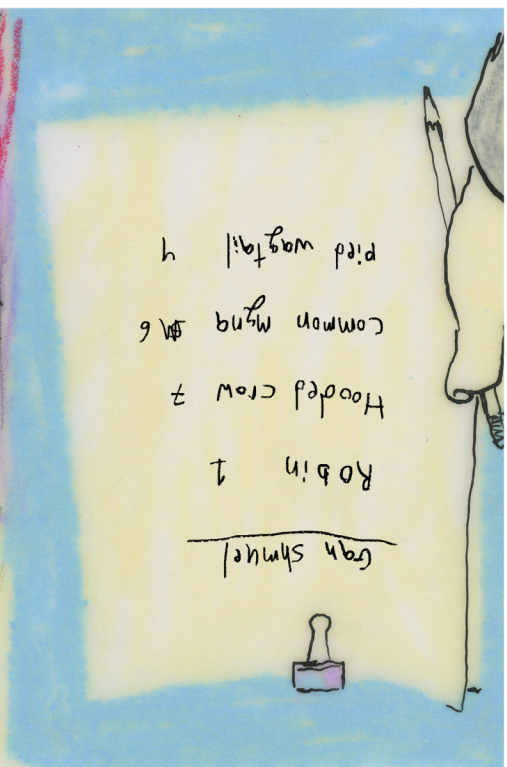 Gan Shmuel
Robin 1
Hooded crow 7
Common Myna 6
Pied wagtail 4